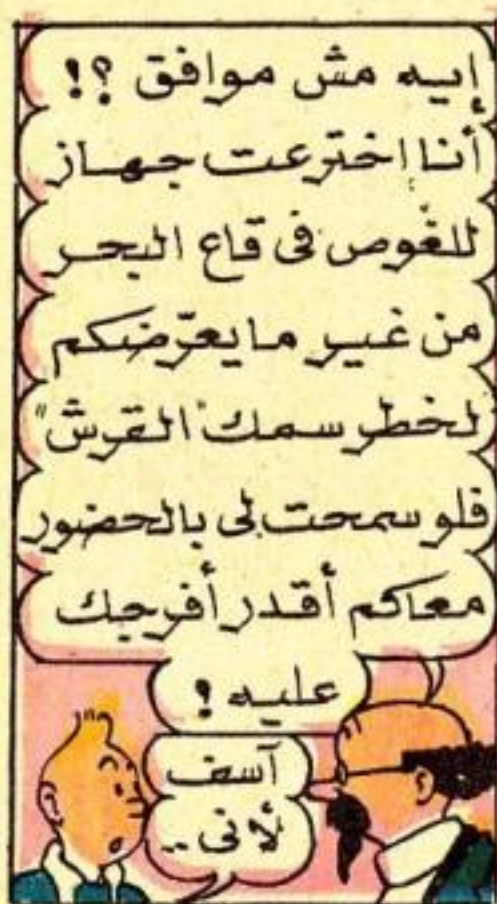 إيه مش موافق ؟!
أنا إخترعت جهاز
للغوص فى قاع البحر
من غير مايعرّضكم
لخطر سمك "القرش"
فلو سمحت لى بالحضور
معاكم أقدر أفرجك
عليه ؟
آسف
لأنى ..